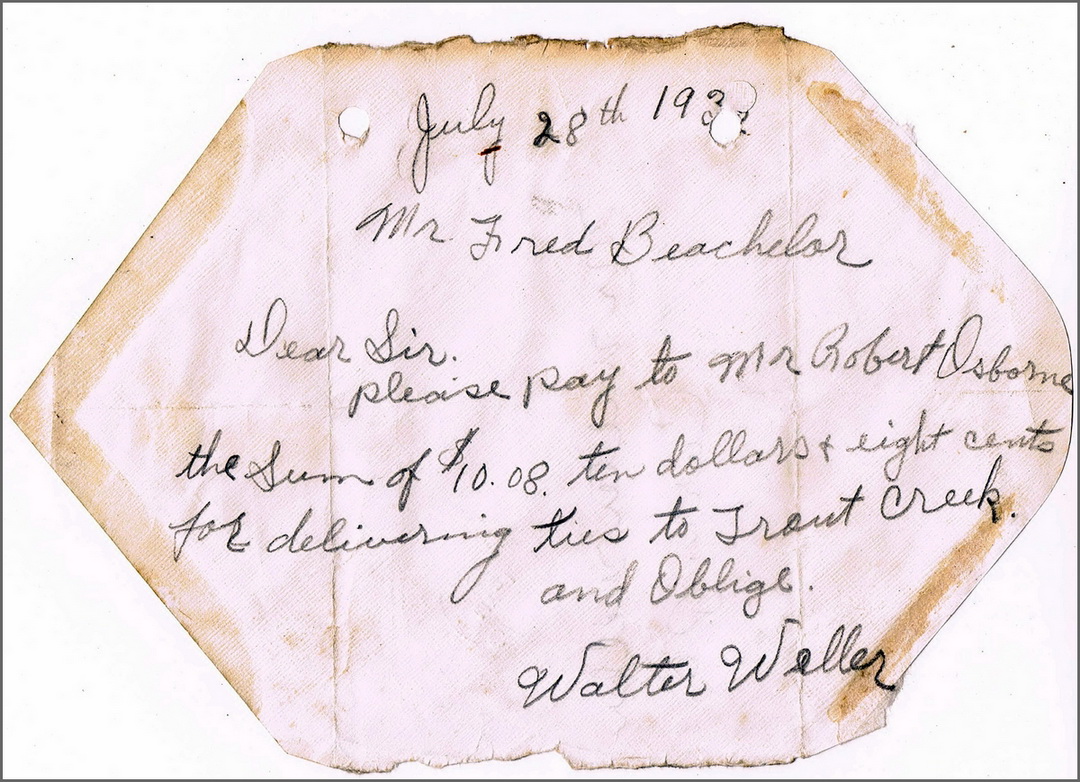 July 28th 193
Mr Fred Beachelor
Dear Sir.
please pay to Mr Robert Osborne
the Sum of $10.08. ten dollars & eight cents
for delivering ties to Trout Creek.
and Oblige.
Walter Weller